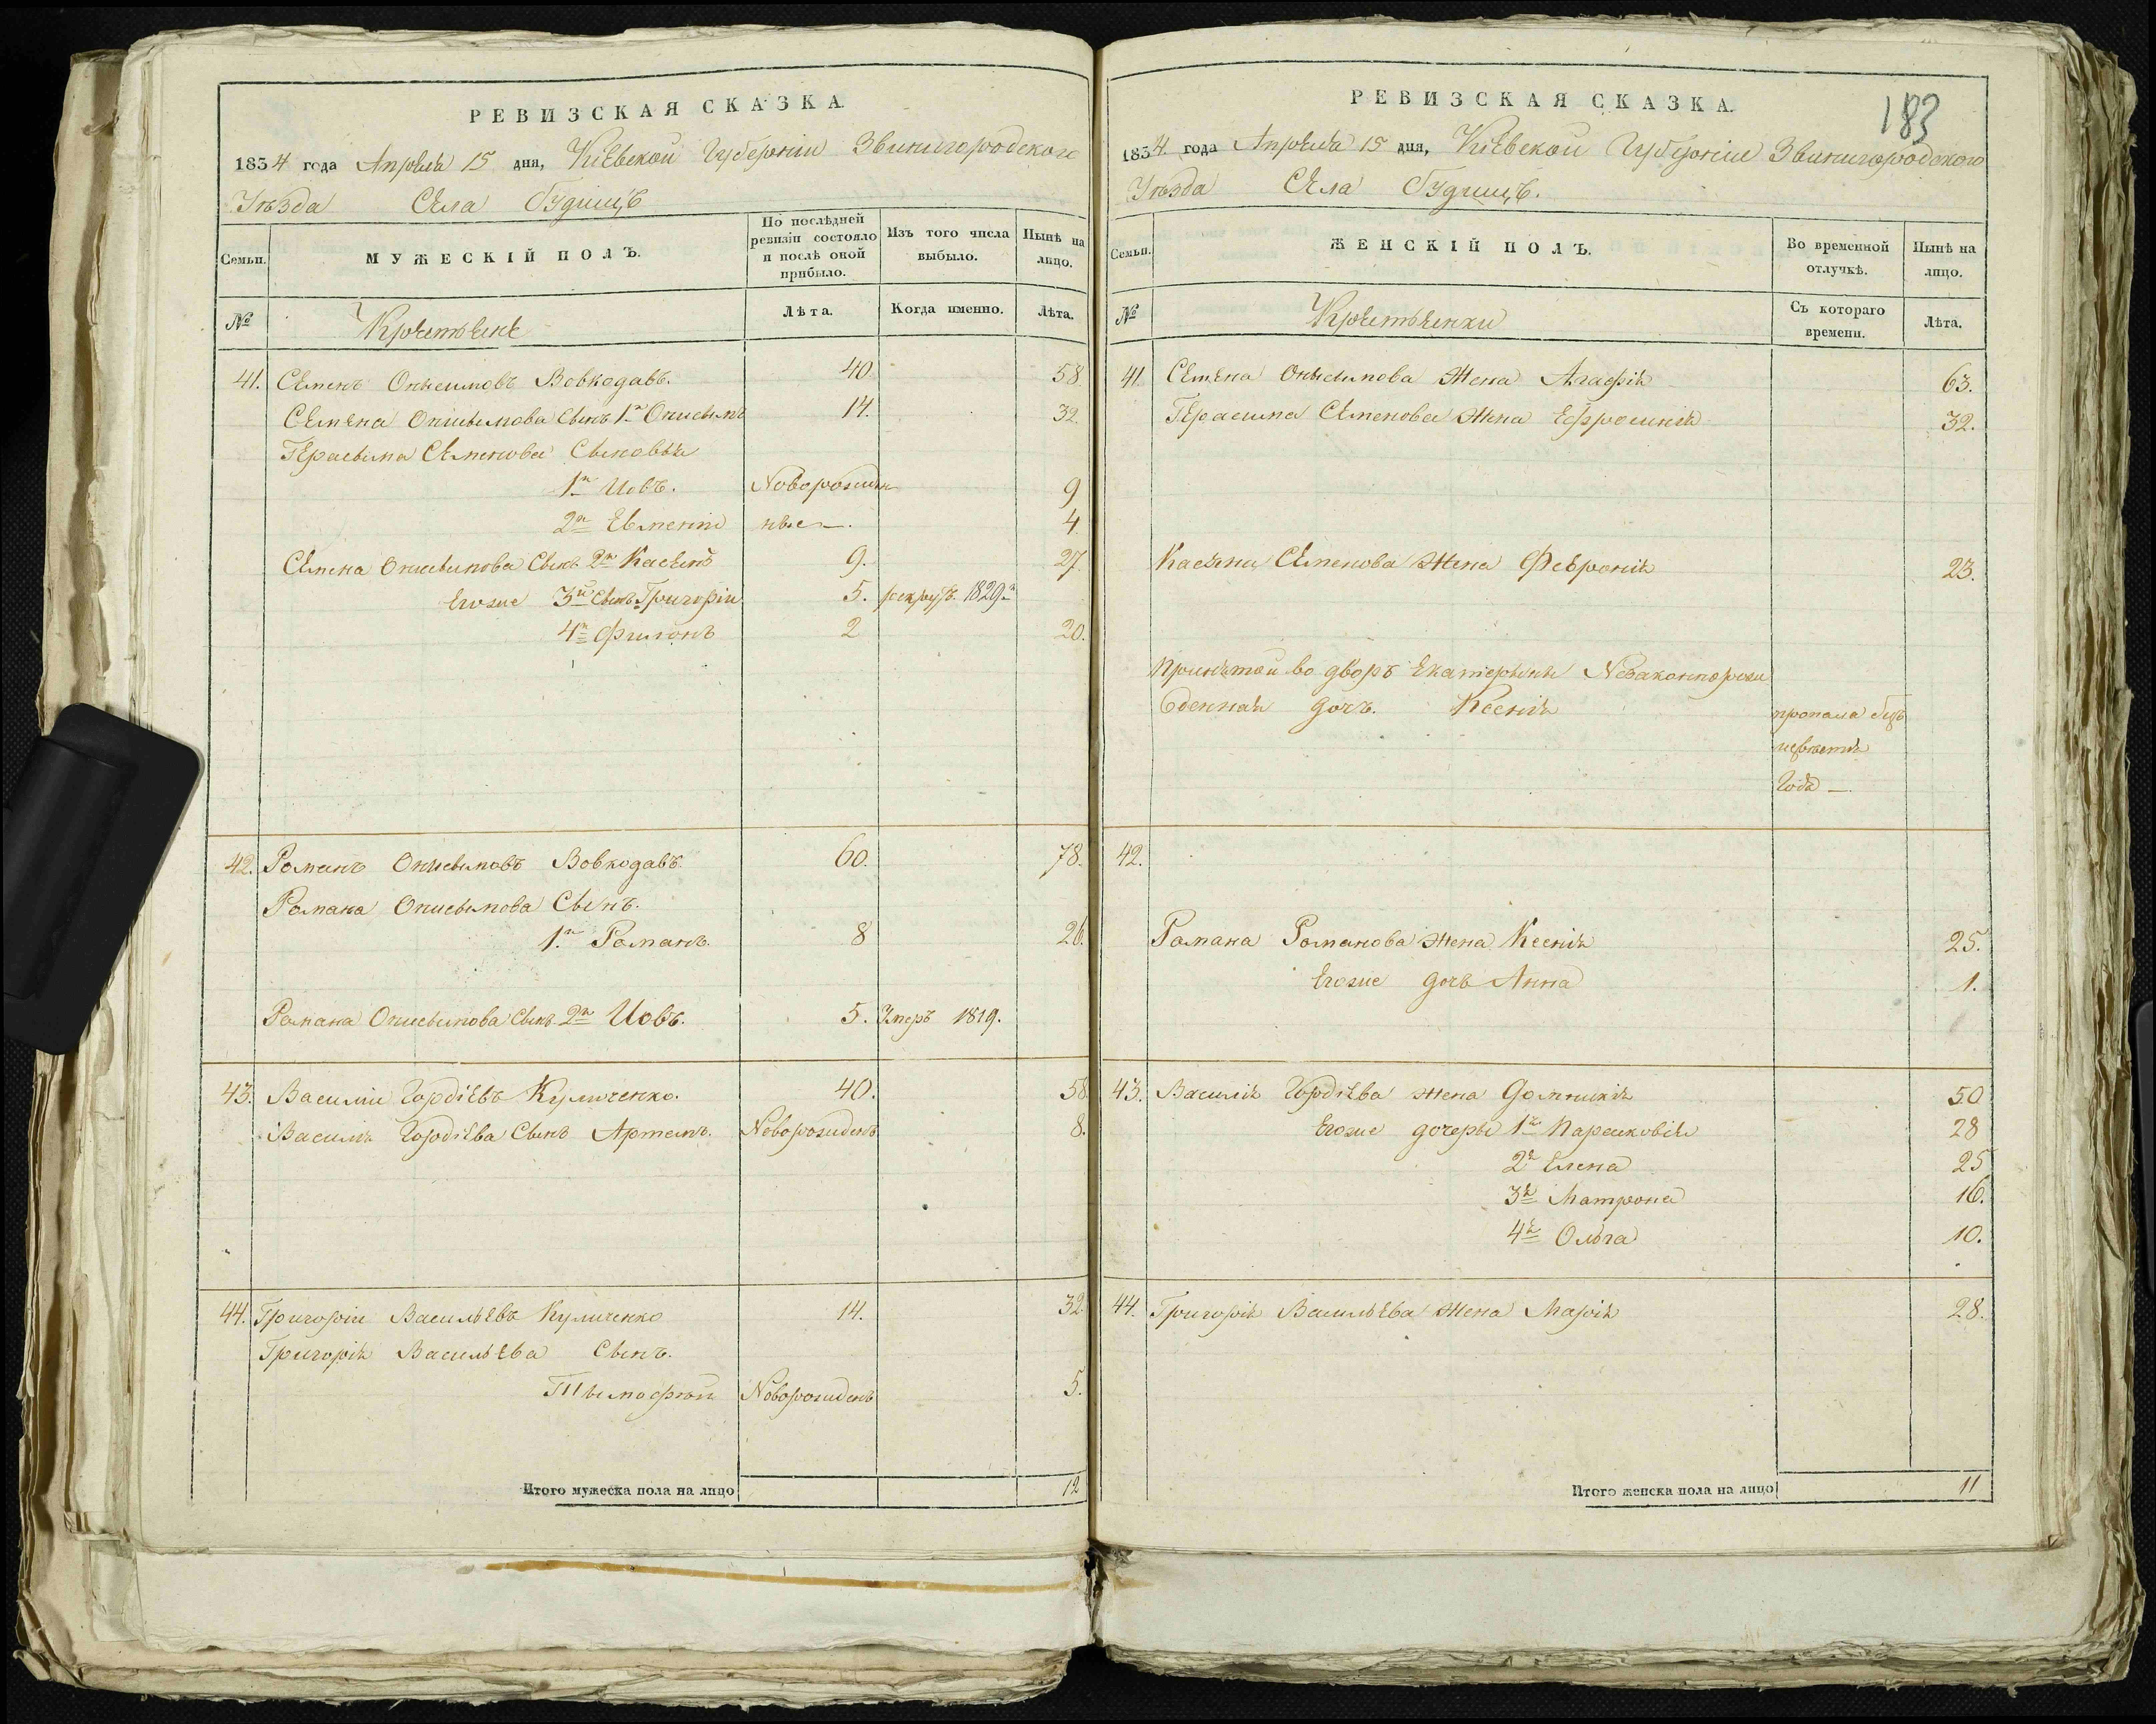 РЕВИЗСКАЯ СКАЗКА.
1834 года Апреля 15 дня, Киевской Губернии Звинигородского
Уезда Села Будищъ
Семьи.
МУЖЕСКІЙ ПОЛЪ.
По послѣдней ревизіи состояло и послѣ оной прибыло.
Изъ того числа выбыло.
Нынѣ на лицо.
№
Крестьяне
Лѣта.
Когда именно.
Лѣта.
41. Семенъ Онисимовъ Вовкодавъ. 40. 58.
Семена Онисимова Сынъ 1й 14. 32.
Герасима Семенова Сыновья
1й Иовъ. Новорожден 9
2й Евмений ные —. 4.
Семена Онисимова Сынъ 2й Касьянъ 9. 27.
Егоже 3й Сынъ Григорій 5. рекрутъ 1829го
4й Филонъ 2 20.
42. Романъ Онисимовъ Вовкодавъ. 60. 78.
Романа Онисимова Сынъ.
1й Романъ. 8 26.
Романа Онисимова Сынъ 2й Иовъ. 5. Умеръ 1819.
43. Василій Гордіевъ Куличенко. 40. 58
Василія Гордіева Сынъ Артемъ. Новорожденъ 8.
44. Григорій Васильевъ Куличенко 14. 32
Григорія Васильева Сынъ.
Тымофѣй Новорожденъ 5.
Итого мужеска пола на лицо 12
РЕВИЗСКАЯ СКАЗКА.
183
1834 года Апреля 15 дня, Киевской Губерніи Звинигородского
Уезда Села Будищъ.
Семьи.
ЖЕНСКІЙ ПОЛЪ.
Во временной отлучкѣ.
Нынѣ на лицо.
№
Крестьянки
Съ котораго времени.
Лѣта.
41 Семена Онисимова Жена Агафія 63.
Герасима Семенова Жена Ефросинія 32.
Касьяна Семенова Жена Февронія 23.
Принятой во дворъ Екатерины Незаконнорож
денная дочь. Ксенія пропала безъ
извѣстія
Года —.
42.
Романа Романова жена Ксенія 25.
Егоже дочь Анна 1.
43. Василія Гордіева жена Домникія 50
Егоже дочеры 1я Парасковія 28
2я Елена 25
3я Матрона 16.
4я Ольга 10.
44. Григорія Васильева Жена Марія 28.
Итого женска пола на лицо 11